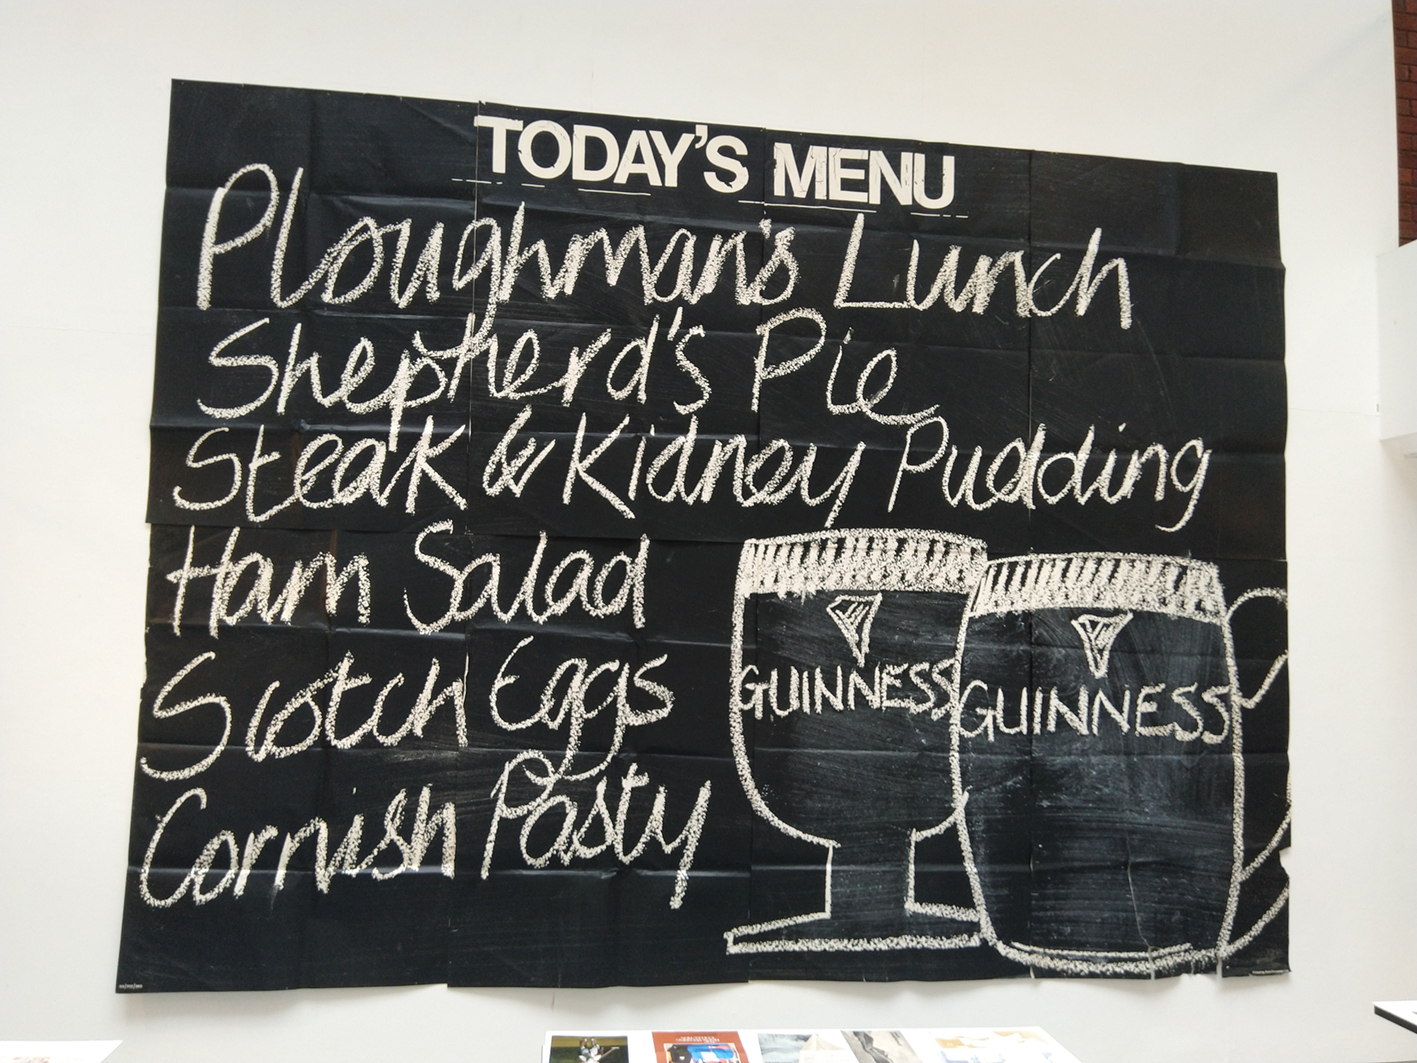 TODAY'S MENU
Ploughman's Lunch
Shepherd's Pie
Steak & Kidney Pudding
Ham Salad
Scotch Eggs
Cornish Pasty
GUINNESS
GUINNESS